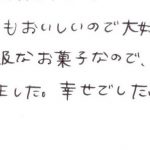 もおいしいので大好
級なお菓子なので、
ました。幸せでした。